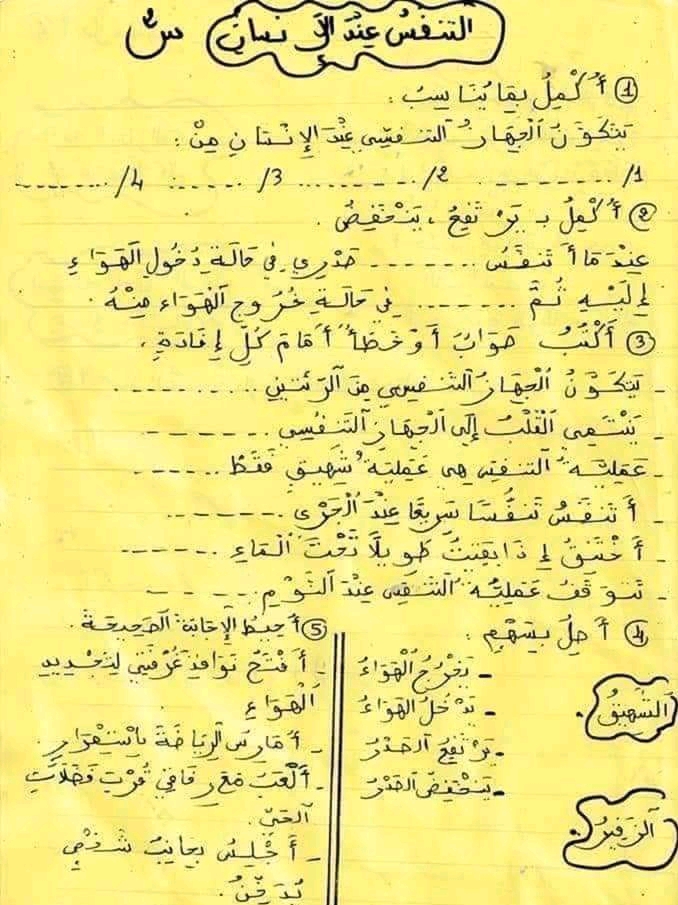 التنفس عِنْدَ الإنسان س3
① أُكْمِلُ بِمَا يُنَاسِبُ :
يَتَكَوَّنُ ٱلْجِهَازُ التنفّسِي عِنْدَ الإِنْسَانِ مِنْ :
1/ ........ 2/ ........ 3/ ...... 4/ ........
② أُكْمِلُ بـ يَرْتَفِعُ ، يَنْخَفِضُ .
عِنْدَمَا أَتَنَفَّسُ ........ صَدْرِي فِي حَالَةِ دُخُولِ الهَوَاءِ
إِلَيْهِ ثُمَّ ........ فِي حَالَةِ خُرُوجِ الهَوَاء مِنْهُ .
③ أَكْتُبُ صَوَابٌ أَوْ خَطَأٌ أَمَامَ كُلِّ إِفَادَةٍ .
- يَتَكَوَّنُ ٱلْجِهَازُ التَنَفُّسِي مِنَ ٱلرِّئَتَيْنِ ........
- يَنْتَمِي ٱلْقَلْبُ إِلَى ٱلْجِهَازِ ٱلتَنَفُّسِي ......
- عَمَلِيَّةُ التنفسِ هِيَ عَمَلِيَّةُ شَهِيقٍ فَقَطْ ......
- أَتَنَفَّسُ تَنَفُّسًا سَرِيعًا عِنْدَ ٱلْجَرْيِ ......
- أَخْتَنِقُ إِذَا بَقِيتُ طَوِيلًا تَحْتَ ٱلْمَاءِ ......
- تَتَوَقَّفُ عَمَلِيَّةُ التَنَفُّسِ عِنْدَ النَّوْمِ ......
④ أَصِلُ بِسَهْمٍ :
الشَّهِيقُ .
الزَّفِيرُ .
- يَخْرُجُ ٱلْهَوَاءُ
- يَدْخُلُ الهَوَاءُ
- يَرْتَفِعُ الصَدْرُ
- يَنْخَفِضُ الصَدْرُ
⑤ أُحِيطُ الإِجَابَةَ الصَّحِيحَةَ .
- أَفْتَحُ نَوَافِذَ غُرْفَتِي لِتَجْدِيدِ
الْهَوَاءِ
- أُمَارِسُ الرِيَاضَةَ بِاسْتِمْرَارٍ
- أَلْعَبُ مَعَ رِفَاقِي قُرْبَ فَضَلَاتِ
الحَيِّ .
- أَجْلِسُ بِجَانِبِ شَخْصٍ
يُدَخِّنُ .